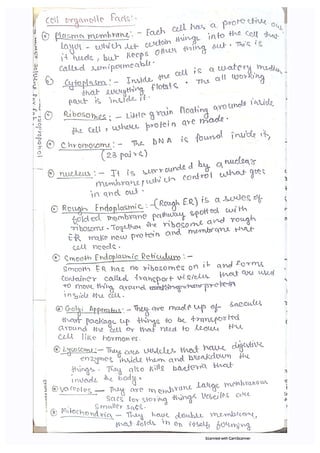 Cell organelle facts:-
Plasma membrane:- Each cell has a protective outer
layer - which let certain things into the cell that
it needs, but keeps other thing out. This is
called semipermeable.
Cytoplasm:- Inside the cell is a watery medium
that everything floats. The all working
part is inside it.
Ribosomes:- Little grain floating arounds inside
the cell, where protein are made.
Chromosome:- The DNA is found inside it,
(23 pairs)
nucleus:- It is surrounded by a nuclear
membrane, which control what goes
in and out.
Rough Endoplasmic:-(Rough ER) is a series of
folded membrane pathway spotted with
ribosome. Together the ribosome and rough
ER make new protein and membrane that
cell needs.
Smooth Endoplasmic Reticulum:-
Smooth ER has no ribosomes on it and forms
container called transport visicles that are used
to move thing around
inside the cell.
Golgi Apparatus:- They are made up of saccules
that package up things to be transported
around the cell or that need to leave the
cell like hormones.
Lysosome:- They are vesicles that have digistive
enzymes inside them and breakdown the
things. They also kills bacteria that
invade the body.
Vacuoles:- They are membrane large membranous
sacs for storing things vesicles are
smaller sacs.
Mitochondria:- They have double membrane,
that folds in on itself forming
Scanned with CamScanner